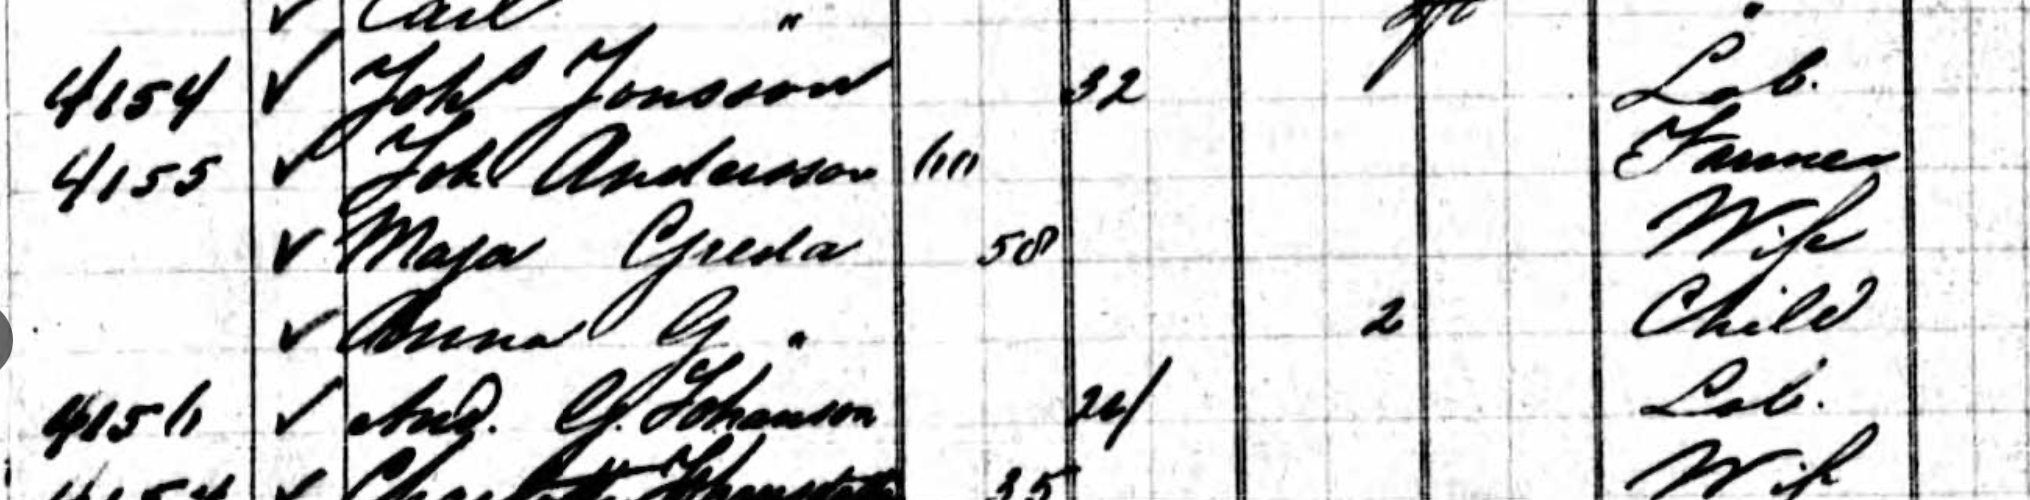 ✓ Carl "
4154 ✓ Joh Jonsson 32 Lab.
4155 ✓ Joh Andersson Farmer
✓ Maja Greda 58 Wife
✓ Anna G. " 2 Child
4156 ✓ And. G. Johanson Lab.
✓ 35 Wife